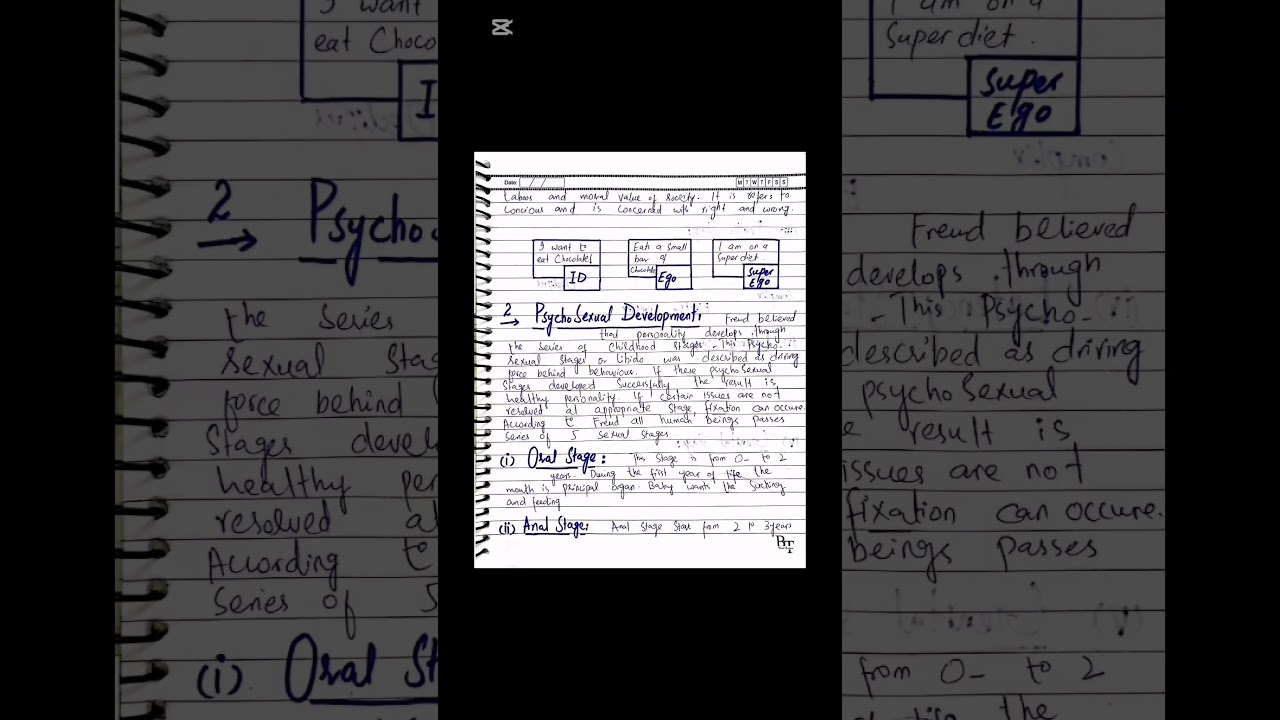 Date: / / M T W T F S S
Laboos and moral value of society. It is refers to
concious and is concerned with right and wrong.
I want to
eat Chocolates
ID
Eats a small
bar of
Chocolate
Ego
I am on a
Super diet.
Super
Ego
2 → PsychoSexual Development: Freud believed
that personality develops through
the series of childhood stages. This Psycho-
Sexual Stages or libido was described as driving
force behind behaviour. If these psychoSexual
Stages developed Successfully the result is
healthy personality. If certain issues are not
resolved at appropriate Stage fixation can occure.
According to Freud all human beings passes
Series of 5 Sexual Stages
(i) Oral Stage: This Stage is from 0- to 2
years. During the first year of life the
mouth is principal organ. Baby wants the Sucking
and feeding
(ii) Anal Stage: Anal Stage Start from 2 to 3 years